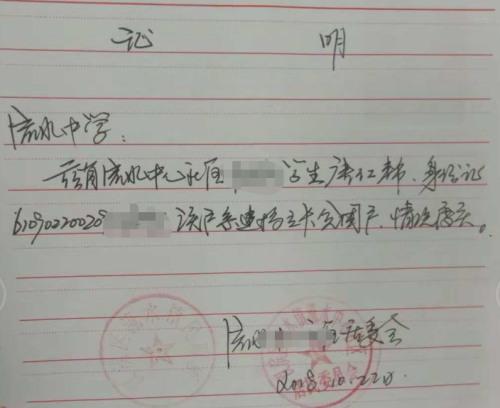 证 明
流水中学：
兹有流水中心社区 学生唐仁郝、身份证
61090220020 该户系建档立卡贫困户，情况属实。
流水 社区居委会
2018.10.22日.
居民委员会